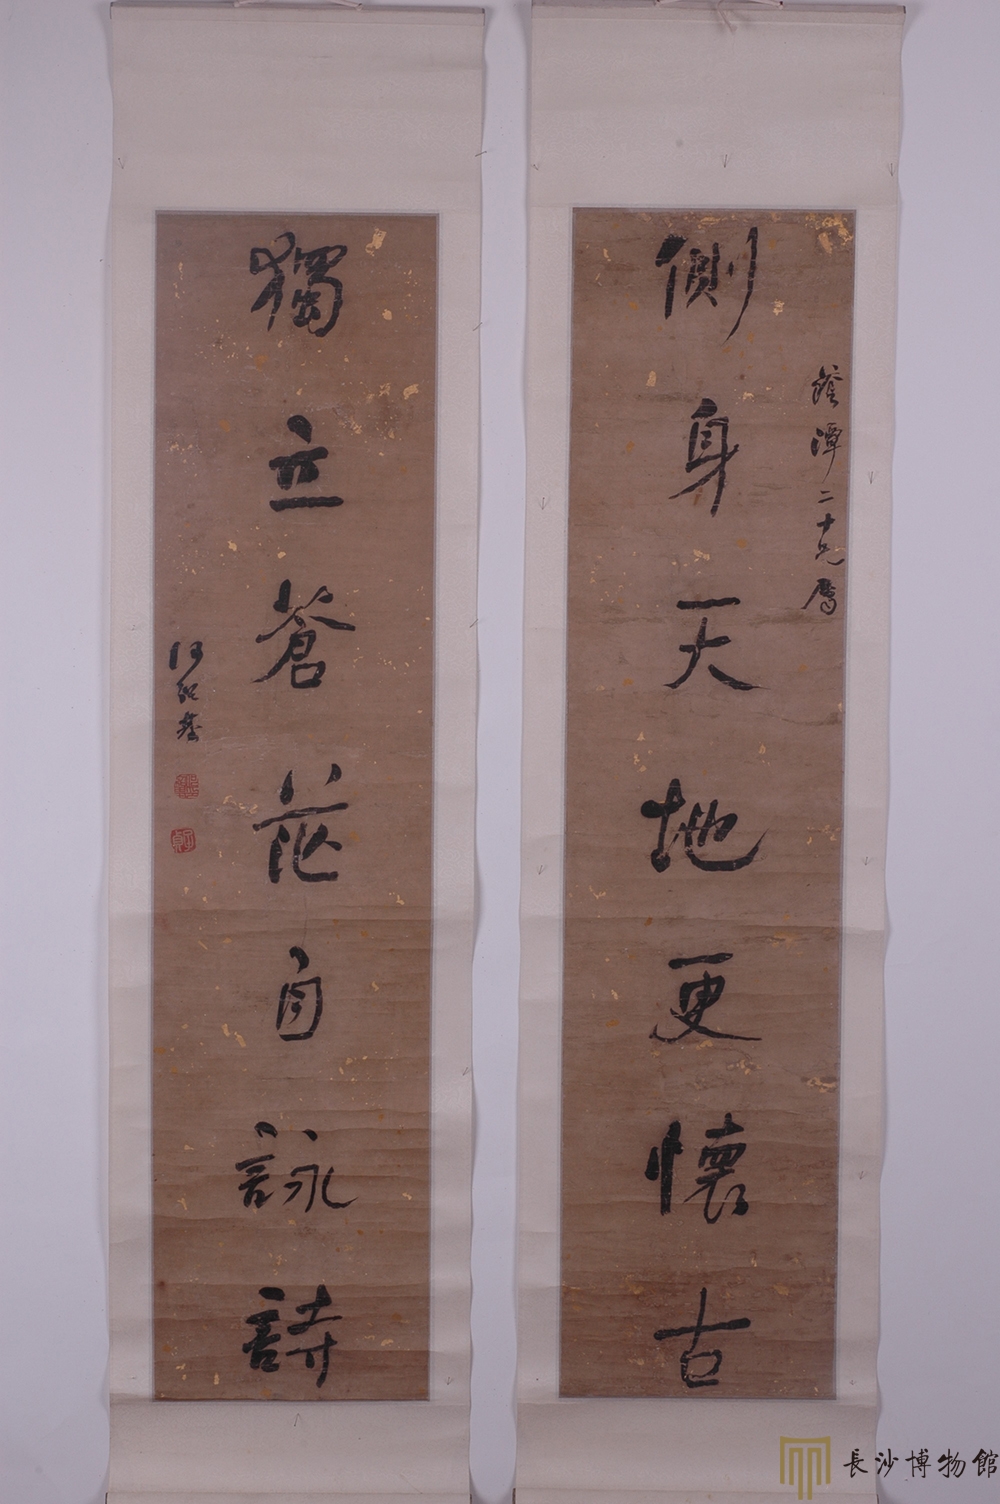 側身天地更懷古
蔭潭二十兄屬
獨立蒼茫自詠詩
何紹基
長沙博物館